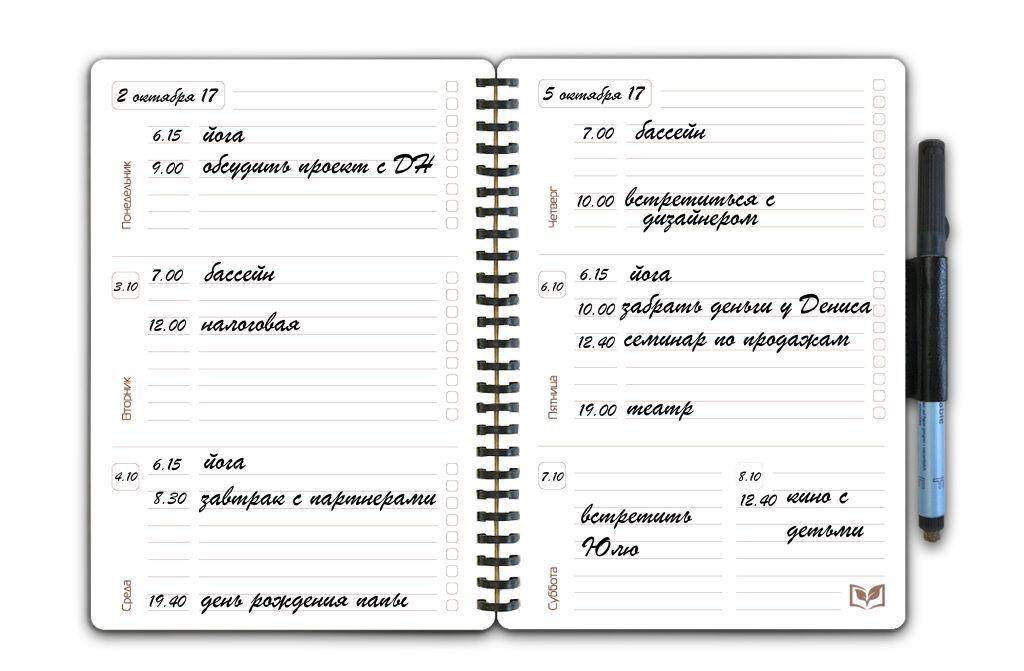 2 октября 17
6.15 йога
9.00 обсудить проект с ДН
Понедельник
3.10
7.00 бассейн
12.00 налоговая
Вторник
4.10
6.15 йога
8.30 завтрак с партнерами
19.40 день рождения папы
Среда
5 октября 17
7.00 бассейн
10.00 встретиться с
дизайнером
Четверг
6.10
6.15 йога
10.00 забрать деньги у Дениса
12.40 семинар по продажам
19.00 театр
Пятница
7.10
встретить
Юлю
Суббота
8.10
12.40 кино с
детьми